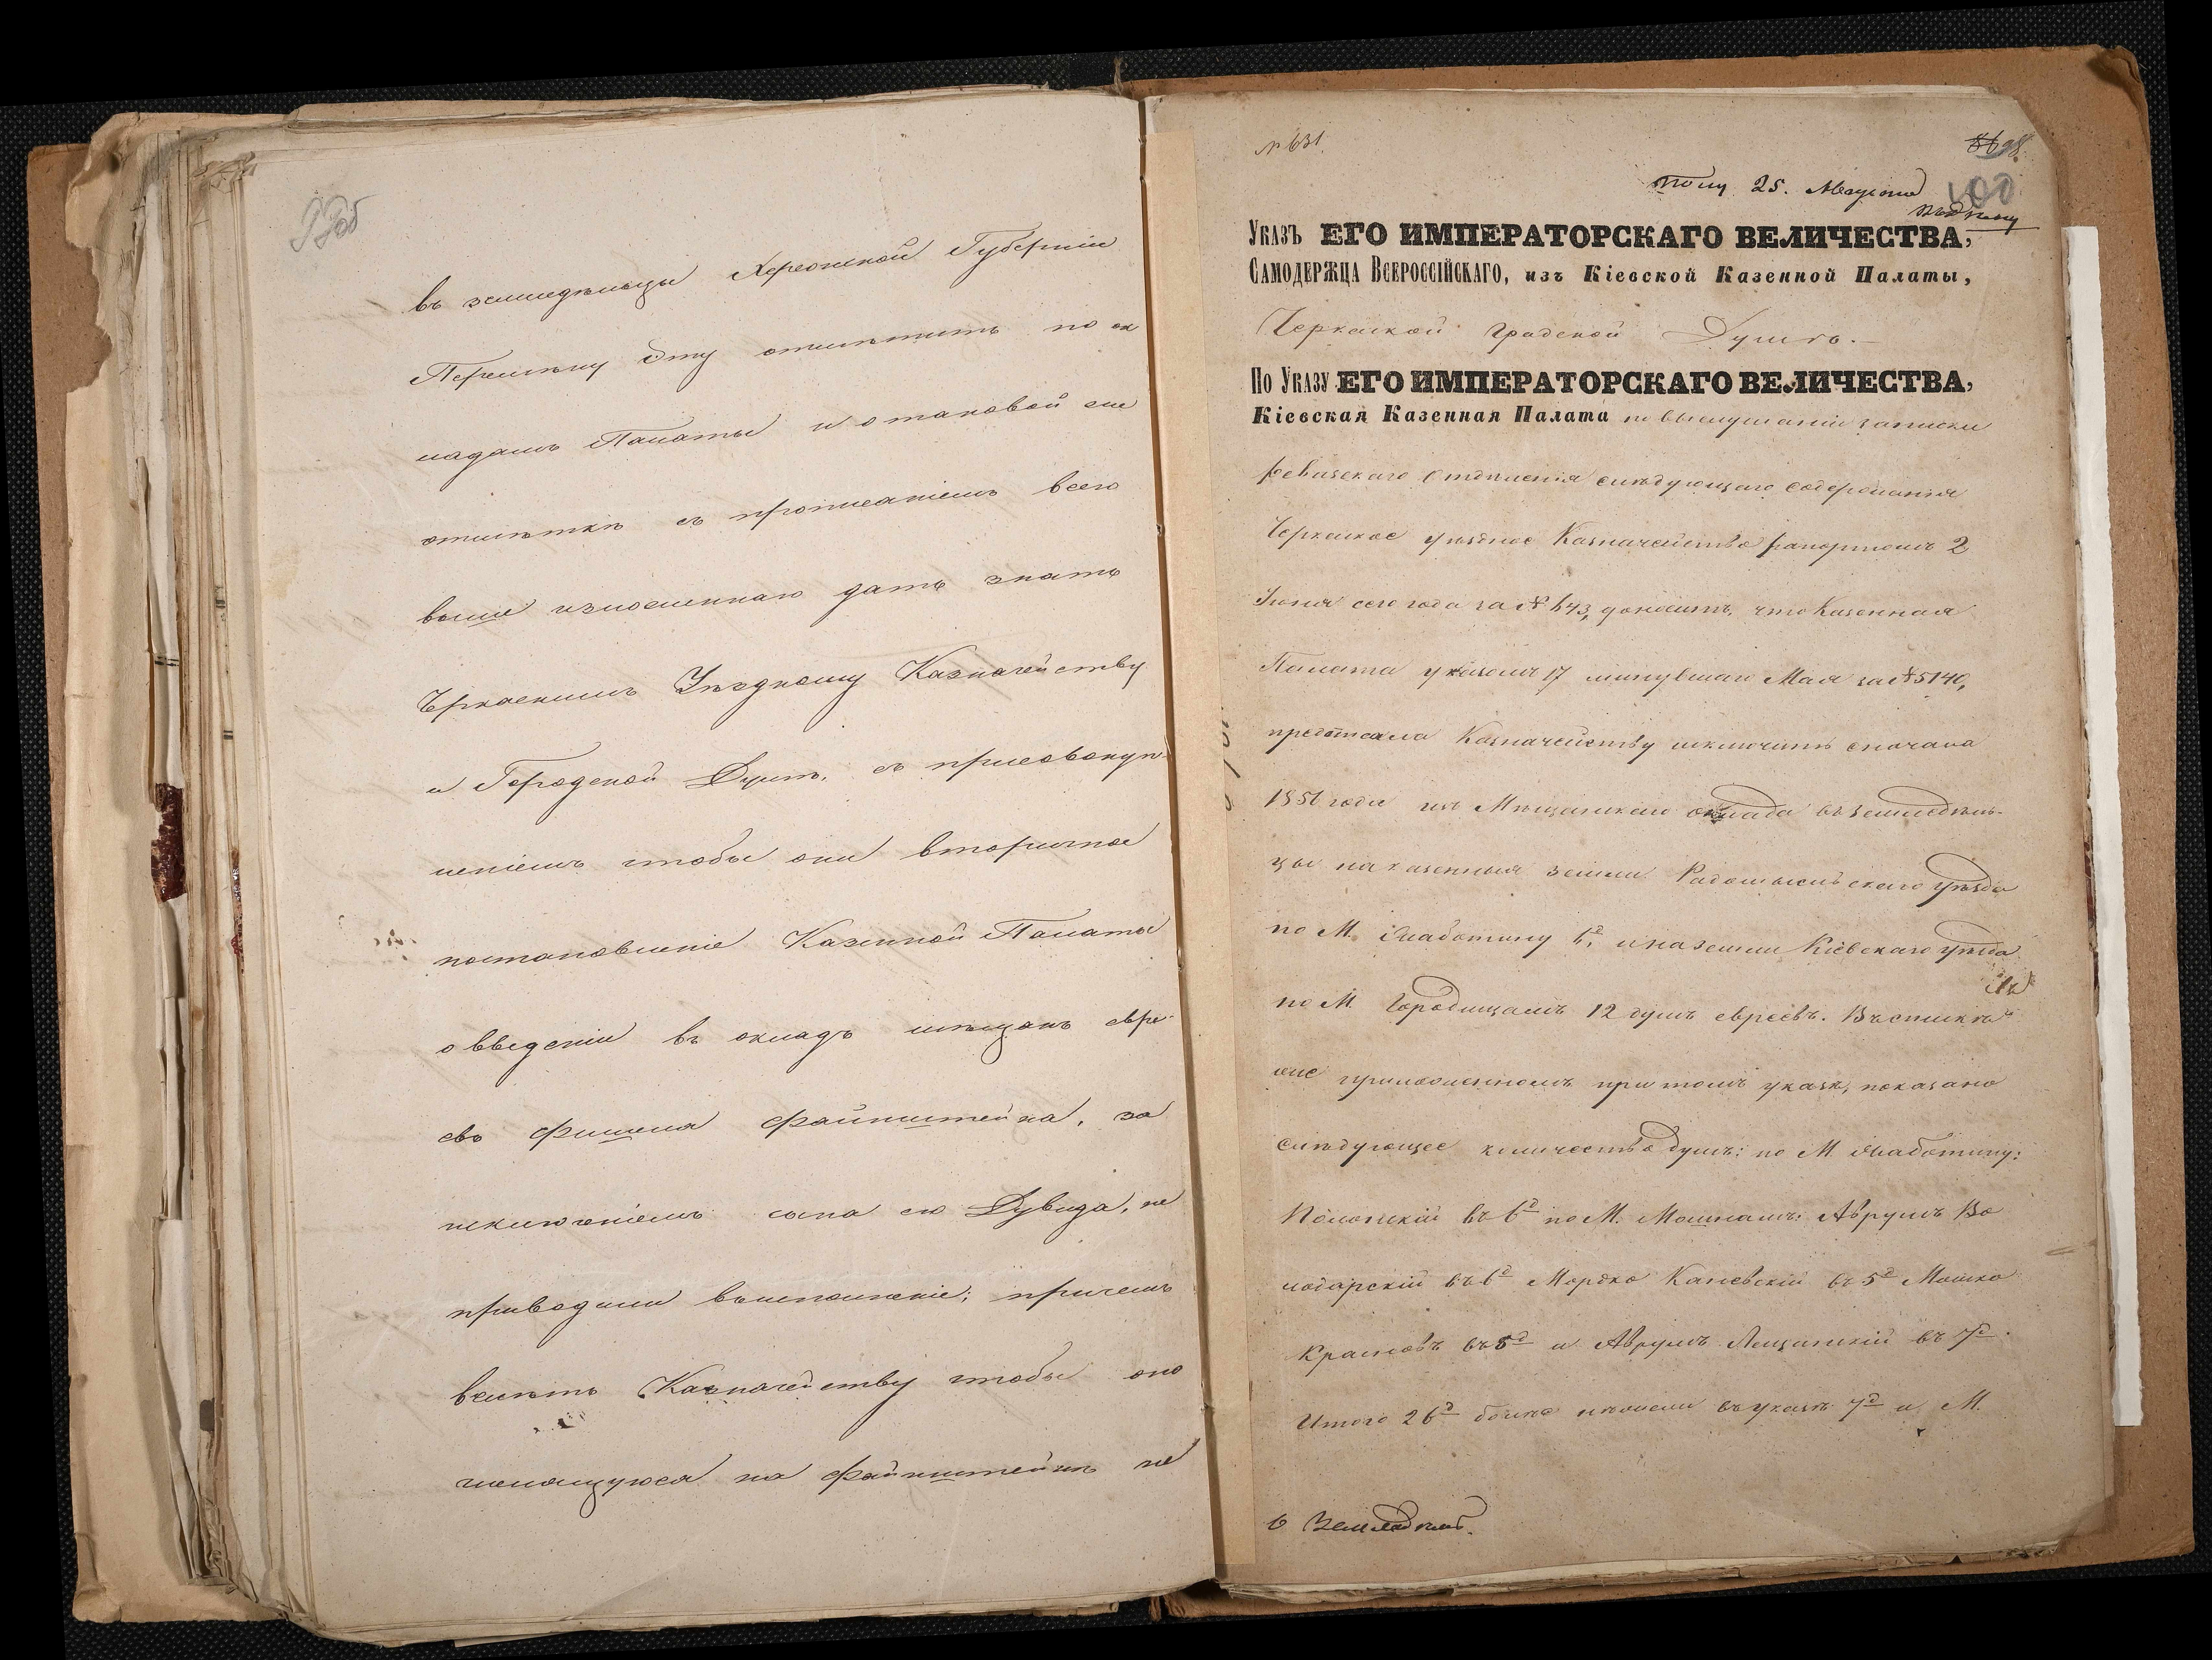 99об
въ земледѣльцы Херсонской Губерніи
Перемѣну эту отмѣтить по ок
ладамъ Палаты и о таковой си
отмѣткѣ съ прописаніемъ всего
выше изложеннаго дать знать
Черкаскимъ Уѣздному Казначейству
и Городской Думѣ, съ присовокуп-
леніемъ чтобы они вторичное
постановленіе Казенной Палаты
о введеніи въ окладъ мѣщанъ евре-
евъ Фишеля Файнштейна, за
исключеніемъ сына его Дувида, не
приводили въ исполненіе; причемъ
велѣть Казначейству чтобы оно
числящуюся на Файнштейнѣ не
№ 631
100
Полу 25. Августа
Указъ ЕГО ИМПЕРАТОРСКАГО ВЕЛИЧЕСТВА,
Самодержца Всероссійскаго, изъ Кіевской Казенной Палаты,
Черкаской Градской Думѣ.
По Указу ЕГО ИМПЕРАТОРСКАГО ВЕЛИЧЕСТВА,
Кіевская Казенная Палата по выслушаніи записки
Ревизскаго Отдѣленія слѣдующаго содержанія
Черкаское уѣздное Казначейство рапортомъ 2
Іюня сего года за № 643, доноситъ, что Казенная
Палата указомъ 17 минувшаго Мая за № 5140,
предписала Казначейству исключить сначала
1856 года изъ Мѣщанскаго оклада въ земледѣль-
цы на казенныя земли Радомысльскаго уѣзда
по М. Смаботину 6д, и на земли Кіевскаго уѣзда
по М. Городищамъ 12 душъ евреевъ. Въ спискѣ
же приложенномъ при томъ указѣ, показано
слѣдующее количество душъ: по М. Смаботину:
Полонскій въ 6д по М. Мошнамъ: Аврумъ Во
лодарскій въ 6д Мордко Каневскій въ 5д Мошко
Красновъ въ 8д и Аврумъ Лещинскій въ 7д.
Итого 26д болѣе нежели въ указѣ 7д и М.
О Земледѣл.